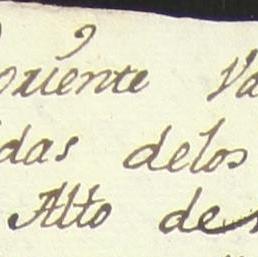 oriente Va
das delos
Alto de